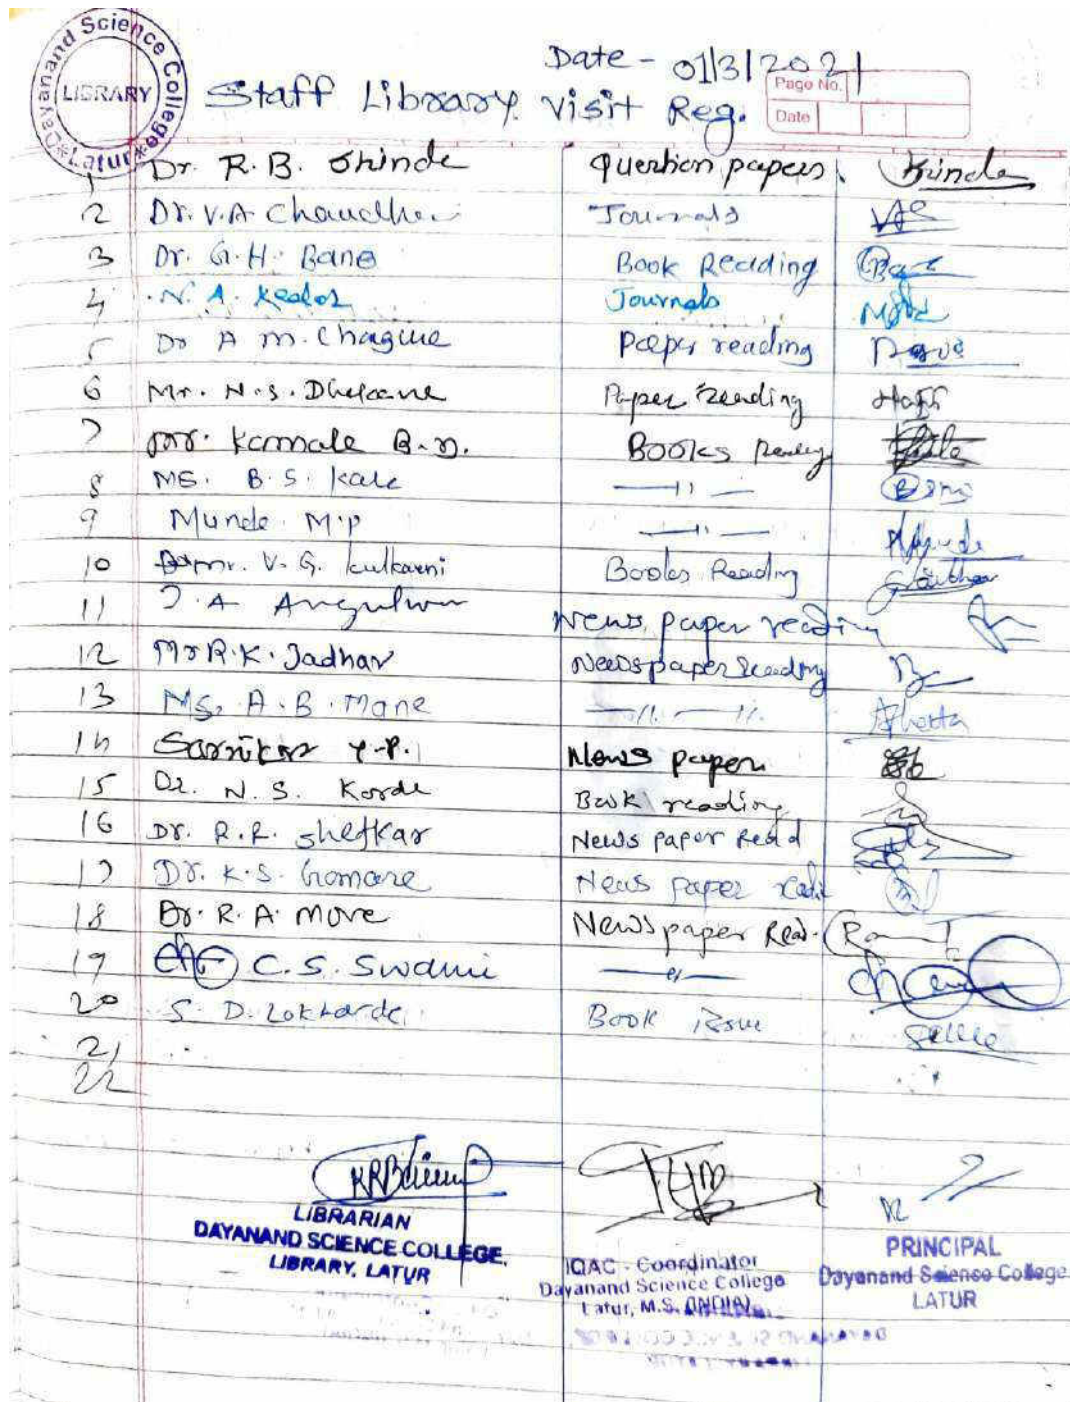 Dayanand Science College
LIBRARY
*Latur*
Date - 01/3/2021
Page No.
Date
Staff Library Visit Reg.
1 Dr. R.B. Shinde Question papers. Shinde
2 Dr. V.A. Journals
3 Dr. G.H. Bang Book Reading
4 N. A. Journals
5 Dr A M. Paper reading
6 Mr. N.S. Paper Reading
7 Kamale B.D. Books
8 MS. B.S. Kale —11—
9 Munde M.P —11—
10 Mr. V.G. Kulkarni Books Reading
11 J.A News paper reading
12 Mr R.K. Jadhav Newspaper Reading
13 MS. A.B. Mane —11.—11.
14 Y.P. News paper
15 Dr. N.S. Korde Book reading
16 Dr. R.R. Shetkar News paper Read
17 Dr. K.S. Gomare News paper
18 Dr. R.A. More Newspaper Read.
19 C.S. Swami —11—
20 S.D. Book issue
21
22
LIBRARIAN
DAYANAND SCIENCE COLLEGE,
LIBRARY, LATUR
IQAC - Coordinator
Dayanand Science College
Latur, M.S. (INDIA)
PRINCIPAL
Dayanand Science College
LATUR